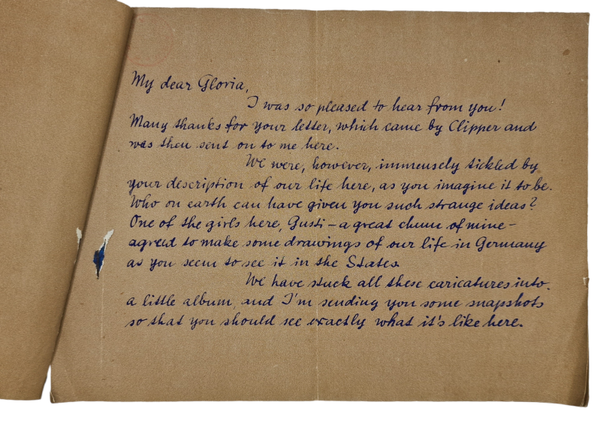 My dear Gloria,
I was so pleased to hear from you!
Many thanks for your letter, which came by Clipper and
was then sent on to me here.
We were, however, immensely tickled by
your description of our life here, as you imagine it to be.
Who on earth can have given you such strange ideas?
One of the girls here, Gusti – a great chum of mine –
agreed to make some drawings of our life in Germany
as you seem to see it in the States.
We have stuck all these caricatures into
a little album, and I'm sending you some snapshots
so that you should see exactly what it's like here.